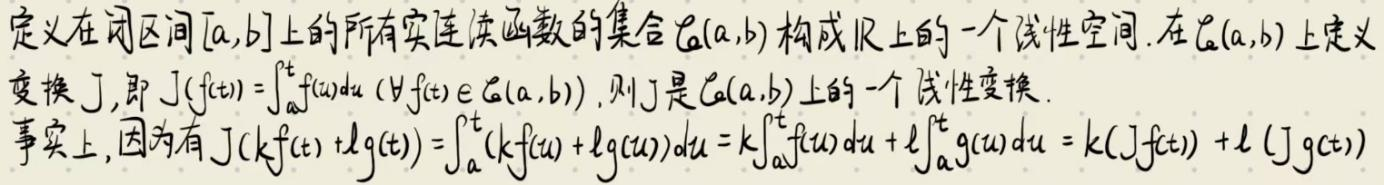 定义在闭区间[a,b]上的所有实连续函数的集合𝒞(a,b)构成ℝ上的一个线性空间.在𝒞(a,b)上定义
变换J,即 J(f(t))=∫ₐᵗf(u)du (∀f(t)∈𝒞(a,b)).则J是𝒞(a,b)上的一个线性变换.
事实上,因为有J(kf(t)+lg(t))=∫ₐᵗ(kf(u)+lg(u))du=k∫ₐᵗf(u)du+l∫ₐᵗg(u)du=k(Jf(t))+l(Jg(t))